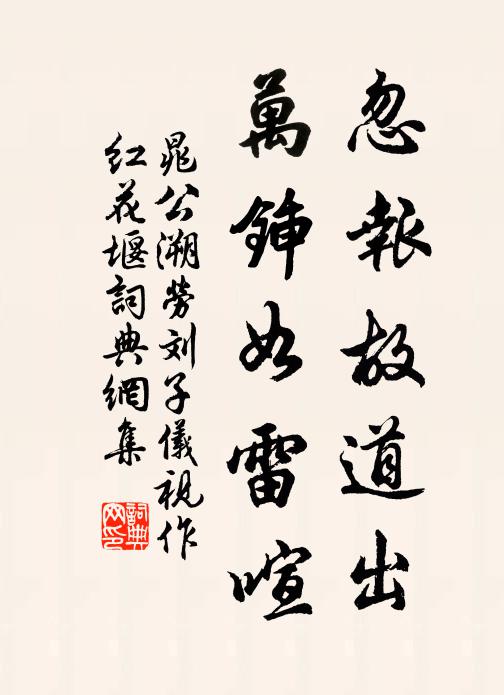 忽報故道出
萬鍤如雷喧
晁公溯勞刘子儀視作
红花堰詞典網集
詞典网印